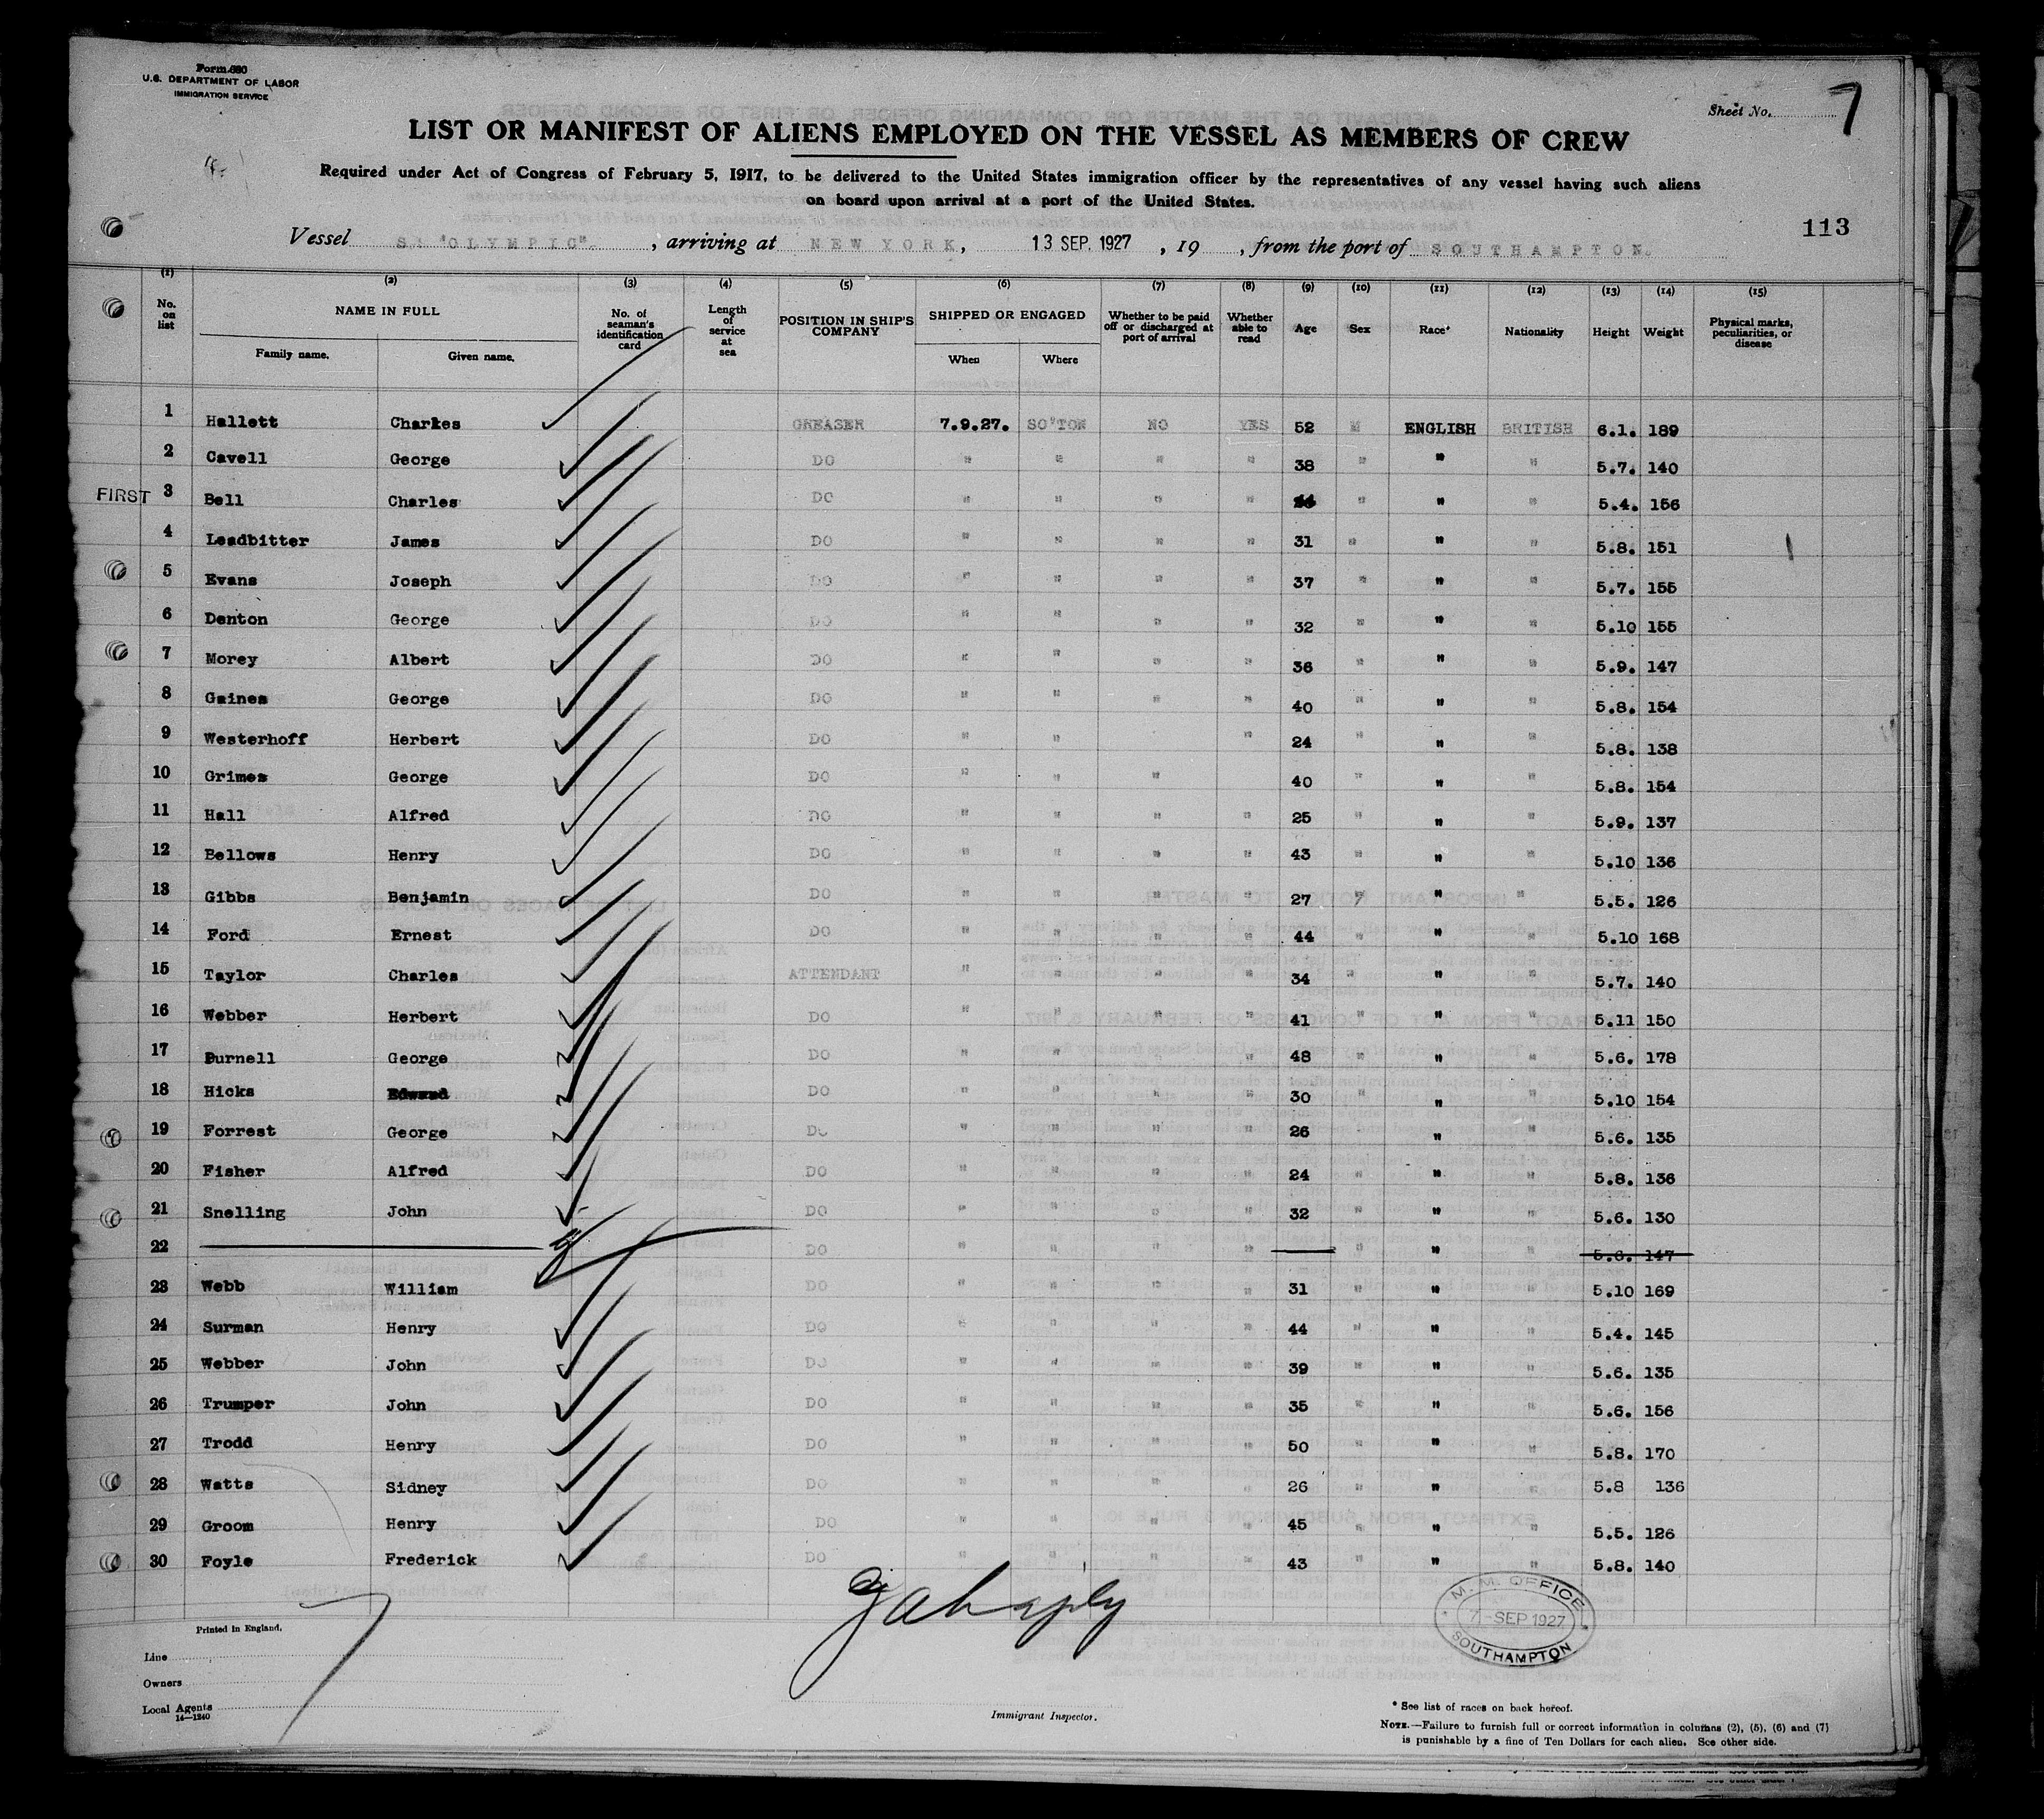 Form 680
U.S. DEPARTMENT OF LABOR
IMMIGRATION SERVICE
Sheet No. 7
LIST OR MANIFEST OF ALIENS EMPLOYED ON THE VESSEL AS MEMBERS OF CREW
Required under Act of Congress of February 5, 1917, to be delivered to the United States immigration officer by the representatives of any vessel having such aliens
on board upon arrival at a port of the United States.
113
Vessel SS "OLYMPIC", arriving at NEW YORK, 13 SEP. 1927, 19 , from the port of SOUTHAMPTON.
(1) (2) (3) (4) (5) (6) (7) (8) (9) (10) (11) (12) (13) (14) (15)
No. on list NAME IN FULL No. of seaman's identification card Length of service at sea POSITION IN SHIP'S COMPANY SHIPPED OR ENGAGED Whether to be paid off or discharged at port of arrival Whether able to read Age Sex Race* Nationality Height Weight Physical marks, peculiarities, or disease
Family name. Given name. When Where
1 Hallett Charles GREASER 7.9.27. SO'TON NO YES 52 M ENGLISH BRITISH 6.1. 189
2 Cavell George DO " " " " 38 " " " 5.7. 140
FIRST 3 Bell Charles DO " " " " " " " 5.4. 156
4 Leadbitter James DO " " " " 31 " " " 5.8. 151
5 Evans Joseph DO " " " " 37 " " " 5.7. 155
6 Denton George DO " " " " 32 " " " 5.10 155
7 Morey Albert DO " " " " 36 " " " 5.9. 147
8 Gaines George DO " " " " 40 " " " 5.8. 154
9 Westerhoff Herbert DO " " " 24 " " " 5.8. 138
10 Grimes George DO " " " 40 " " " 5.8. 154
11 Hall Alfred DO " " " " 25 " " " 5.9. 137
12 Bellows Henry DO " " " " 43 " " " 5.10 136
13 Gibbs Benjamin DO " " " " 27 " " " 5.5. 126
14 Ford Ernest DO " " " " 44 " " " 5.10 168
15 Taylor Charles ATTENDANT " " " " 34 " " " 5.7. 140
16 Webber Herbert DO " " " " 41 " " " 5.11 150
17 Burnell George DO " " " " 48 " " " 5.6. 178
18 Hicks Edward DO " " " " 30 " " " 5.10 154
19 Forrest George DO " " " " 26 " " " 5.6. 135
20 Fisher Alfred DO " " " " 24 " " " 5.8. 136
21 Snelling John DO " " " " 32 " " " 5.6. 130
22 DO " " " " " " " 5.6. 147
23 Webb William DO " " " " 31 " " " 5.10 169
24 Surman Henry DO " " " " 44 " " " 5.4. 145
25 Webber John DO " " " " 39 " " " 5.6. 135
26 Trumper John DO " " " " 35 " " " 5.6. 156
27 Trodd Henry DO " " " " 50 " " " 5.8. 170
28 Watts Sidney DO " " " " 26 " " " 5.8 136
29 Groom Henry DO " " " " 45 " " " 5.5. 126
30 Foyle Frederick DO " " " " 43 " " " 5.8. 140
M. M. OFFICE
7 - SEP 1927
SOUTHAMPTON
7
Printed in England.
Line
Owners
Local Agents
14—1240
Immigrant Inspector.
* See list of races on back hereof.
NOTE.—Failure to furnish full or correct information in columns (2), (5), (6) and (7)
is punishable by a fine of Ten Dollars for each alien. See other side.